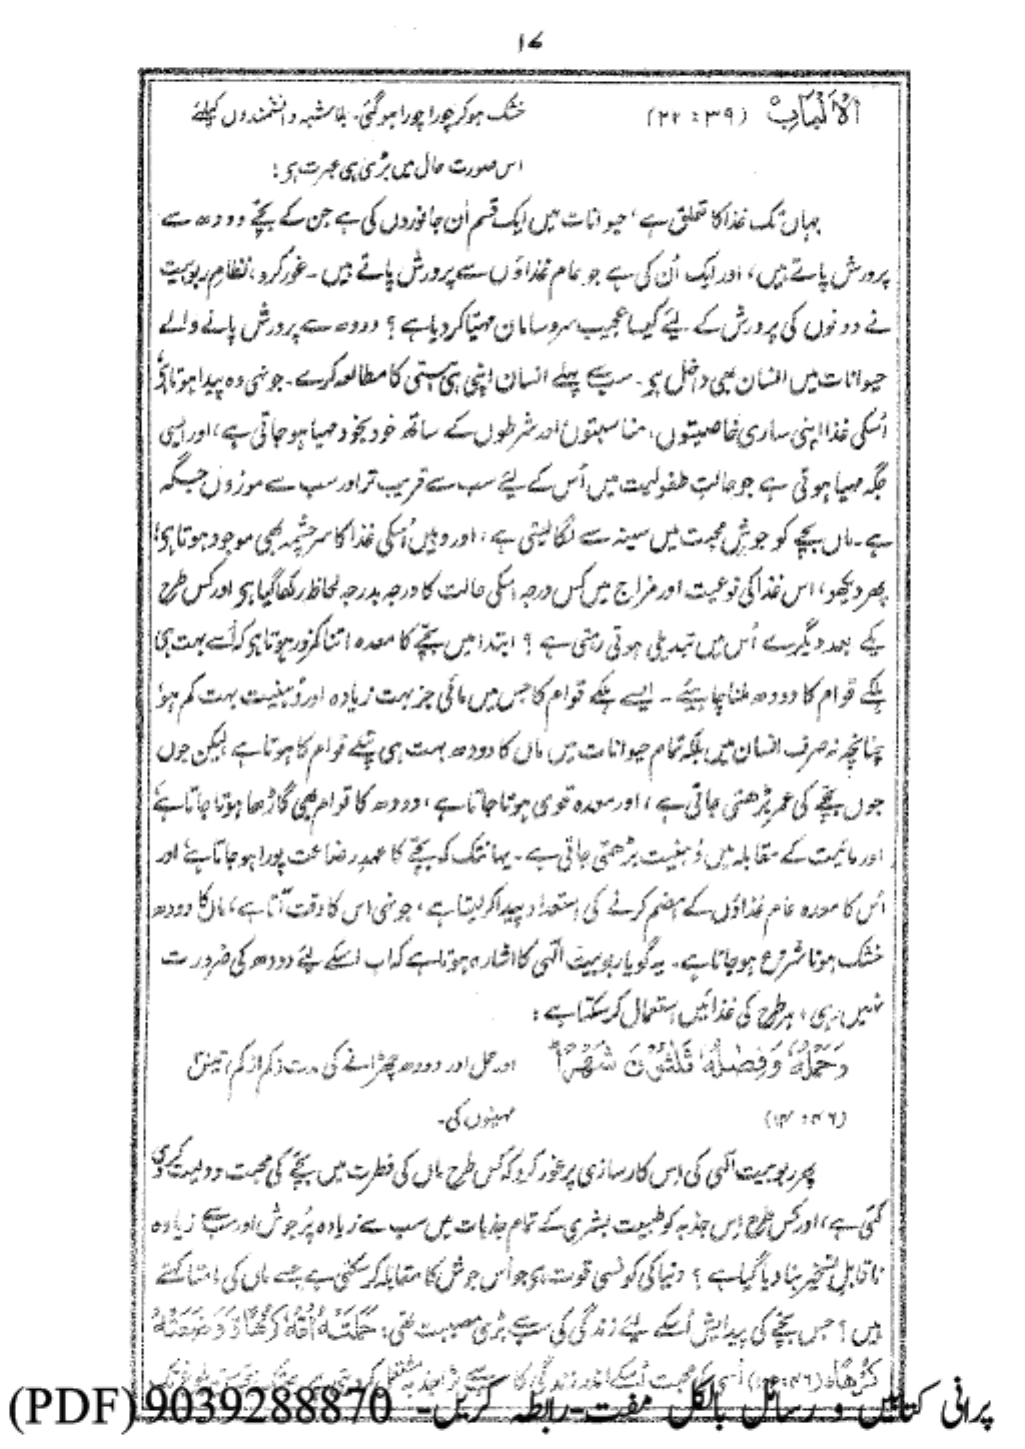 ۱۷
الْاَلْبَابِ (۲۲:۳۹) خشک ہوکر چورا چورا ہوگئی۔ بلاشبہ دانشمندوں کیلئے
اس صورت حال میں بڑی ہی عبرت ہی:
جہاں تک غذا کا تعلق ہے، حیوانات میں ایک قسم اُن جانوروں کی ہے جن کے بچے دودھ سے
پرورش پاتے ہیں، اور ایک اُن کی ہے جو عام غذاؤں سے پرورش پاتے ہیں۔ غور کرو، نظام ربوبیت
نے دونوں کی پرورش کے لیے کیسا عجیب سروسامان مہیا کردیا ہے؟ دودھ سے پرورش پانے والے
حیوانات میں انسان بھی داخل ہی۔ سب سے پہلے انسان اپنی ہی ہستی کا مطالعہ کرے۔ جونہی وہ پیدا ہوتا ہی
اُسکی غذا اپنی ساری خاصیتوں، مناسبتوں اور شرطوں کے ساتھ خود بخود مہیا ہوجاتی ہے، اور ایسی
جگہ مہیا ہوتی ہے جو حالتِ طفولیت میں اُس کے لیے سب سے قریب تر اور سب سے موزوں جگہ
ہے۔ ماں بچے کو جوشِ محبت میں سینہ سے لگا لیتی ہے، اور وہیں اُسکی غذا کا سرچشمہ بھی موجود ہوتا ہی!
پھر دیکھو، اس غذا کی نوعیت اور مزاج میں کس درجہ اسکی حالت کا درجہ بدرجہ لحاظ رکھا گیا ہی اور کس طرح
یکے بعد دیگرے اُس میں تبدیلی ہوتی رہتی ہے؟ ابتدا میں بچے کا معدہ اتنا کمزور ہوتا ہی کہ اُسے بہت ہی
ہلکے قوام کا دودھ ملنا چاہیئے۔ ایسے ہلکے قوام کا جس میں مائی جز بہت زیادہ اور دُہنیت بہت کم ہو
چنانچہ نہ صرف انسان میں بلکہ تمام حیوانات میں ماں کا دودھ بہت ہی پتلے قوام کا ہوتا ہے لیکن جوں
جوں بچے کی عمر بڑھتی جاتی ہے، اور معدہ قوی ہوتا جاتا ہے، دودھ کا قوام بھی گاڑھا ہوتا جاتا ہے
اور مائیت کے مقابلہ میں دُہنیت بڑھتی جاتی ہے۔ یہانتک کہ بچے کا عہدِ رضاعت پورا ہوجاتا ہے اور
اُس کا معدہ عام غذاؤں کے ہضم کرنے کی استعداد پیدا کر لیتا ہے، جونہی اس کا وقت آتا ہے، ماں کا دودھ
خشک ہونا شروع ہوجاتا ہے۔ یہ گویا ربوبیت الٰہی کا اشارہ ہوتا ہے کہ اب اسکے لیے دودھ کی ضرورت
نہیں رہی، ہر طرح کی غذائیں استعمال کرسکتا ہے:
وَحَمْلُهٗ وَفِصٰلُهٗ ثَلٰثُوْنَ شَهْرًا اور حمل اور دودھ چھڑانے کی مدت (کم از کم) تیس
(۱۴:۴۶) مہینوں کی۔
پھر ربوبیت الٰہی کی اِس کارسازی پر غور کرو کہ کس طرح ماں کی فطرت میں بچے کی محبت ودیعت کردی
گئی ہے، اور کس طرح اِس جذبہ کو طبیعت بشری کے تمام جذبات میں سب سے زیادہ پُرجوش اور سب سے زیادہ
ناقابل تسخیر بنا دیا گیا ہے؟ دنیا کی کونسی قوت ہی جو اُس جوش کا مقابلہ کرسکتی ہے جسے ماں کی مامتا کہتے
ہیں؟ جس بچے کی پیدایش اُسکے لیے زندگی کی سب سے بڑی مصیبت تھی، حَمَلَتْهُ اُمُّهٗ كُرْهًا وَّ وَضَعَتْهُ
كُرْهًا اُسی کی محبت اُسکے اندر زندگی کا سب سے بڑا جذبہ مشتعل کردیتی ہے
پرانی کتابیں و رسائل بالکل مفت-رابطہ کریں- 9039288870 (PDF)